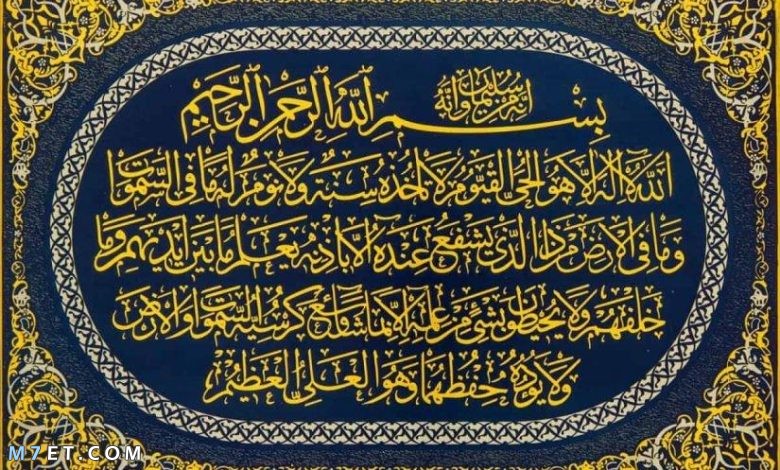 إنه من سليمان وإنه
بسم الله الرحمن الرحيم
الله لا إله إلا هو الحي القيوم لا تأخذه سنة ولا نوم له ما في السموات
وما في الأرض من ذا الذي يشفع عنده إلا بإذنه يعلم ما بين أيديهم وما
خلفهم ولا يحيطون بشيء من علمه إلا بما شاء وسع كرسيه السموات والأرض
ولا يؤده حفظهما وهو العلي العظيم
M7ET.COM